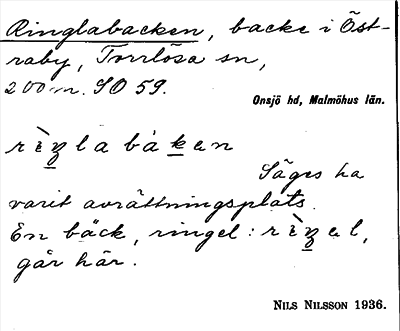 Ringlabacken, backe i Öst-
raby, Torrlösa sn,
200 m. SO 59.
Onsjö hd, Malmöhus län.
rìŋla bákan
Säges ha
varit avrättningsplats.
En bäck, ringel: rìŋal,
går här.
NILS NILSSON 1936.